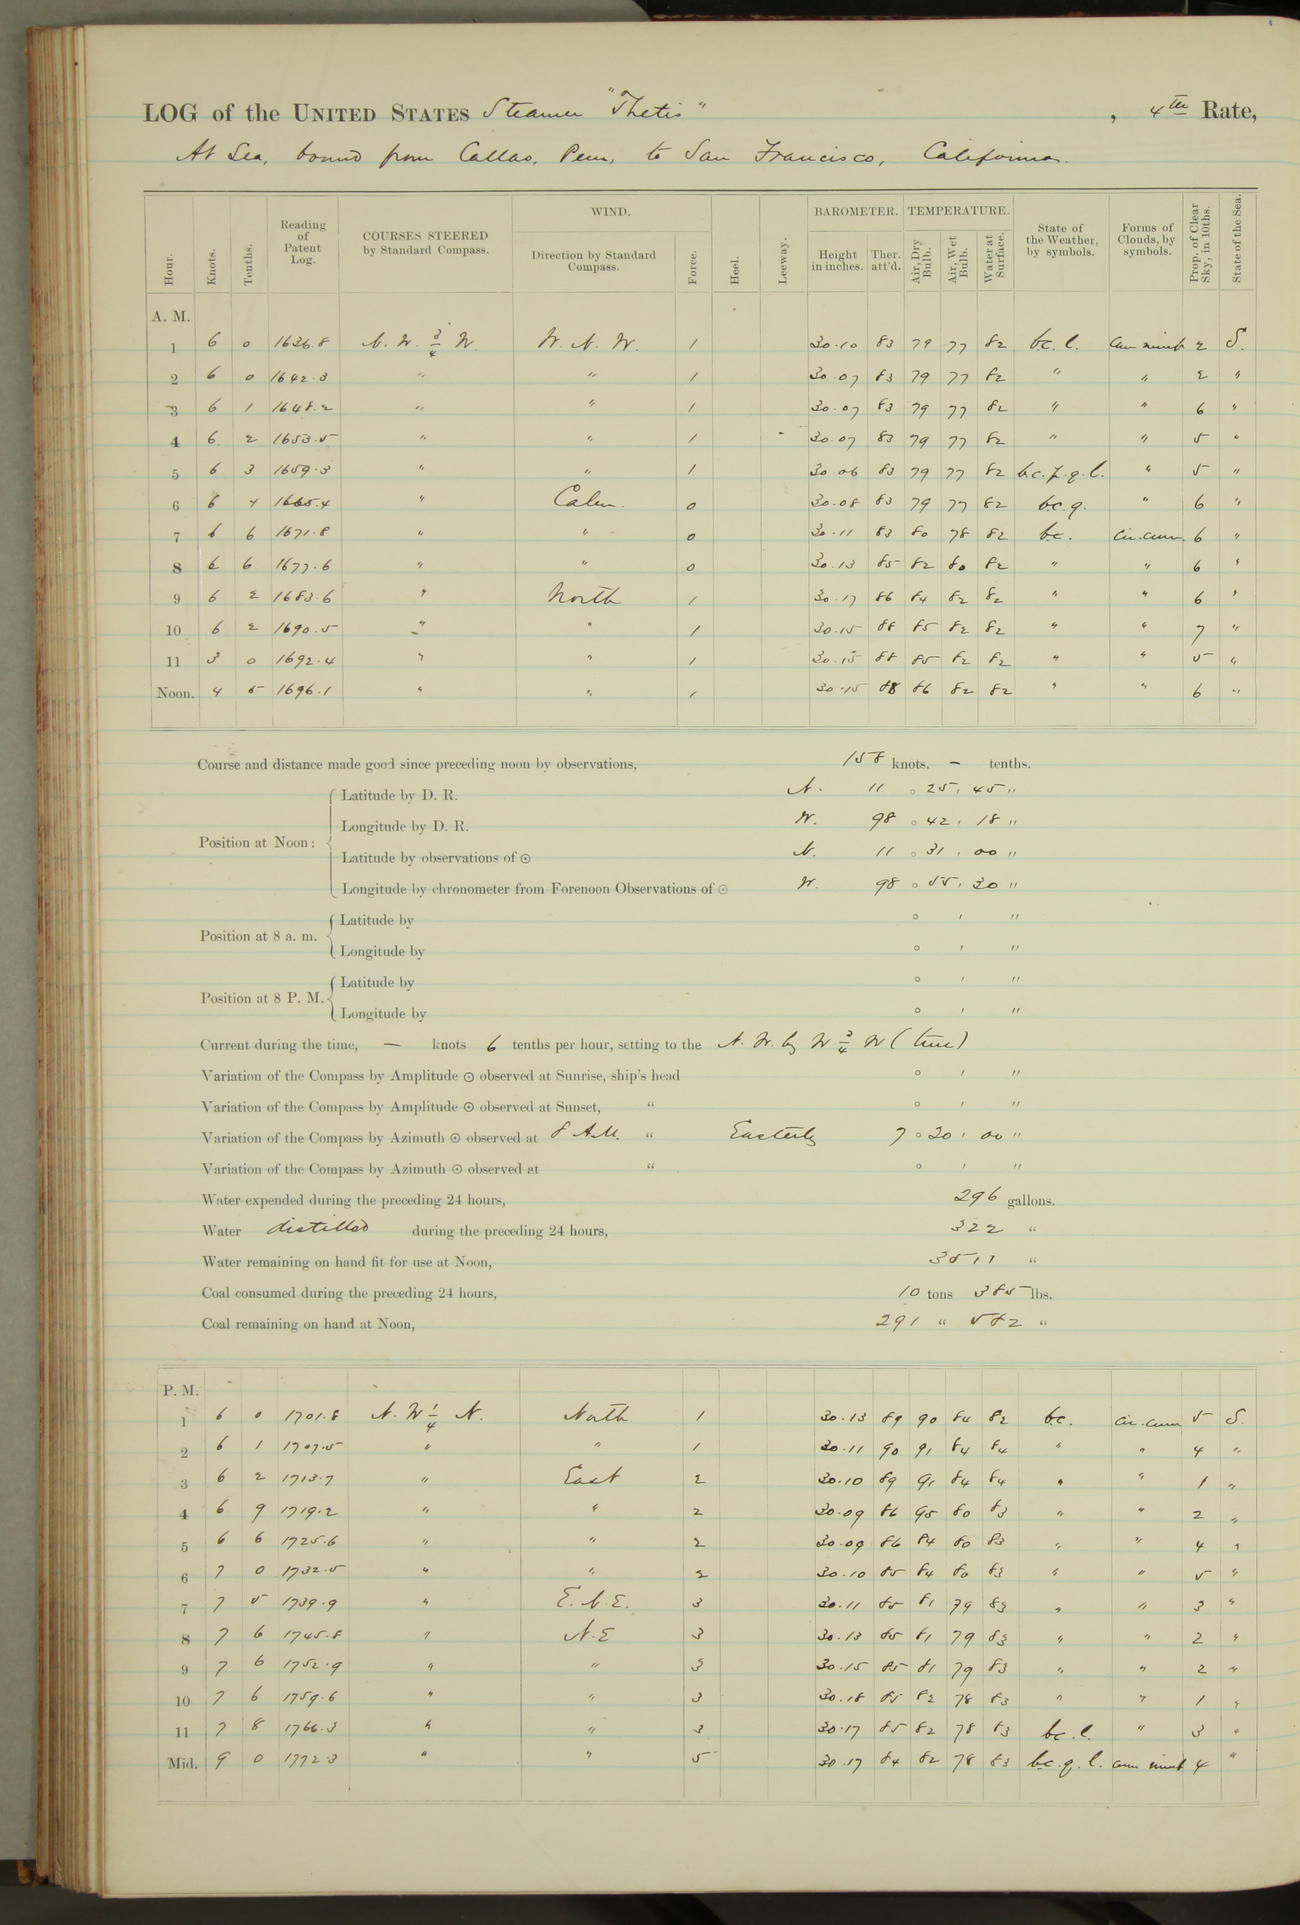 LOG of the UNITED STATES Steamer "Thetis", 4th Rate,
At Sea, bound from Callao, Peru, to San Francisco, California.
Hour. Knots. Tenths. Reading of Patent Log. COURSES STEERED by Standard Compass. WIND. Direction by Standard Compass. Force. Heel. Leeway. BAROMETER. Height in inches. Ther. att'd. TEMPERATURE. Air, Dry Bulb. Air, Wet Bulb. Water at Surface. State of the Weather, by symbols. Forms of Clouds, by symbols. Prop. of Clear Sky, in 10ths. State of the Sea.
A. M.
1 6 0 1636.8 N. W. 3/4 W. W. N. W. 1 30.10 83 79 77 82 bc. l. cum nimb 2 S.
2 6 0 1642.3 " " 1 30.07 83 79 77 82 " " 2 "
3 6 1 1648.2 " " 1 30.07 83 79 77 82 " " 6 "
4 6 2 1653.5 " " 1 30.07 83 79 77 82 " " 5 "
5 6 3 1659.3 " " 1 30 06 83 79 77 82 bc. p. q. l. " 5 "
6 6 4 1665.4 " Calm. 0 30.08 83 79 77 82 bc. q. " 6 "
7 6 6 1671.8 " " 0 30.11 83 80 78 82 bc. cir. cum. 6 "
8 6 6 1677.6 " " 0 30.13 85 82 80 82 " " 6 "
9 6 2 1683.6 " North 1 30.17 86 84 82 82 " " 6 "
10 6 2 1690.5 " " 1 30.15 88 85 82 82 " " 7 "
11 3 0 1692.4 " " 1 30.15 88 85 82 82 " " 5 "
Noon. 4 5 1696.1 " " 1 30.15 88 86 82 82 " " 6 "
Course and distance made good since preceding noon by observations, 158 knots, — tenths.
Position at Noon: Latitude by D. R. N. 11 ° 25 ' 45 "
Longitude by D. R. W. 98 ° 42 ' 18 "
Latitude by observations of ☉ N. 11 ° 31 ' 00 "
Longitude by chronometer from Forenoon Observations of ☉ W. 98 ° 55 ' 30 "
Position at 8 a. m. Latitude by ° ' "
Longitude by ° ' "
Position at 8 P. M. Latitude by ° ' "
Longitude by ° ' "
Current during the time, — knots 6 tenths per hour, setting to the N. W. by W 3/4 W (true)
Variation of the Compass by Amplitude ☉ observed at Sunrise, ship's head ° ' "
Variation of the Compass by Amplitude ☉ observed at Sunset, " ° ' "
Variation of the Compass by Azimuth ☉ observed at 8 A.M. " Easterly 7 ° 30 ' 00 "
Variation of the Compass by Azimuth ☉ observed at " ° ' "
Water expended during the preceding 24 hours, 296 gallons.
Water distilled during the preceding 24 hours, 322 "
Water remaining on hand fit for use at Noon, 3511 "
Coal consumed during the preceding 24 hours, 10 tons 385 lbs.
Coal remaining on hand at Noon, 291 " 582 "
P. M.
1 6 0 1701.8 N. W 1/4 N. North 1 30.13 89 90 84 82 bc. cir. cum 5 S.
2 6 1 1707.5 " " 1 30.11 90 91 84 84 " " 4 "
3 6 2 1713.7 " East 2 30.10 89 91 84 84 " " 1 "
4 6 9 1719.2 " " 2 30.09 86 95 80 83 " " 2 "
5 6 6 1725.6 " " 2 30.09 86 84 80 83 " " 4 "
6 7 0 1732.5 " " 2 30.10 85 84 80 83 " " 5 "
7 7 5 1739.9 " E. N. E. 3 30.11 85 81 79 83 " " 3 "
8 7 6 1745.8 " N. E 3 30.13 85 81 79 83 " " 2 "
9 7 6 1752.9 " " 3 30.15 85 81 79 83 " " 2 "
10 7 6 1759.6 " " 3 30.18 85 82 78 83 " " 1 "
11 7 8 1766.3 " " 3 30.17 85 82 78 83 bc. l. " 3 "
Mid. 9 0 1772.3 " " 5 30.17 84 82 78 83 bc. q. l. cum nimb 4 "